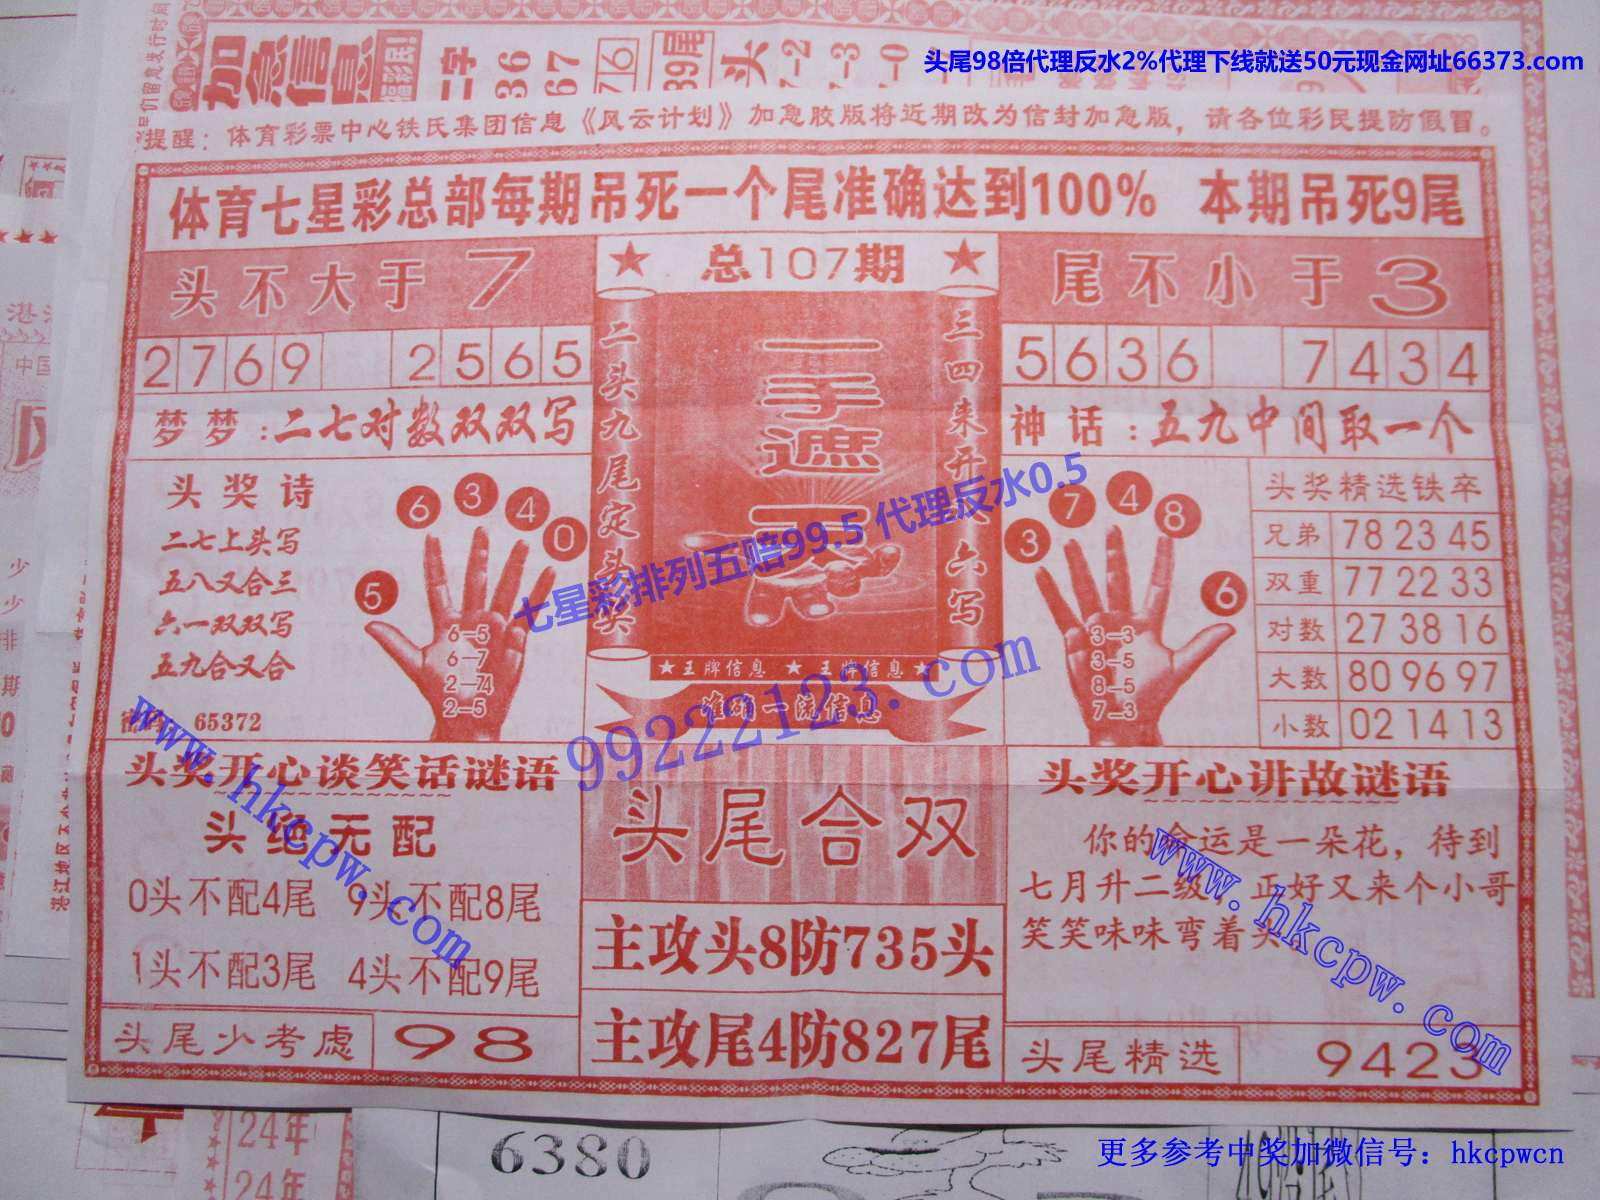 头尾98倍代理反水2%代理下线就送50元现金网址66373.com
加急信息
二字
36
67
76
89尾
头
7-2
-3
-0
提醒：体育彩票中心铁氏集团信息《风云计划》加急胶版将近期改为信封加急版，请各位彩民提防假冒。
体育七星彩总部每期吊死一个尾准确达到100% 本期吊死9尾
头不大于7
总107期
尾不小于3
2769 2565
5636 7434
梦梦：二七对数双双写
神话：五九中间取一个
二头九尾定头奖
一手遮天
三四来开 六写
头奖诗
二七上头写
五八又合三
六一双双写
五九合又合
65372
5 6 3 4 0
6-5
6-7
2-74
2-5
3 7 4 8 6
3-3
3-5
8-5
7-3
头奖精选铁卒
兄弟 78 23 45
双重 77 22 33
对数 27 38 16
大数 80 96 97
小数 02 14 13
七星彩排列五赔99.5 代理反水0.5
★王牌信息 ★王牌信息★
准确一流信息
99222123.com
www.hkcpw.com
头奖开心谈笑话谜语
头绝无配
0头不配4尾 9头不配8尾
1头不配3尾 4头不配9尾
头尾少考虑 98
头尾合双
主攻头8防735头
主攻尾4防827尾
头奖开心讲故谜语
你的命运是一朵花，待到
七月升二级，正好又来个小哥
笑笑味味弯着头。
www.hkcpw.com
头尾精选 9423
24年
24年
6380
更多参考中奖加微信号：hkcpwcn